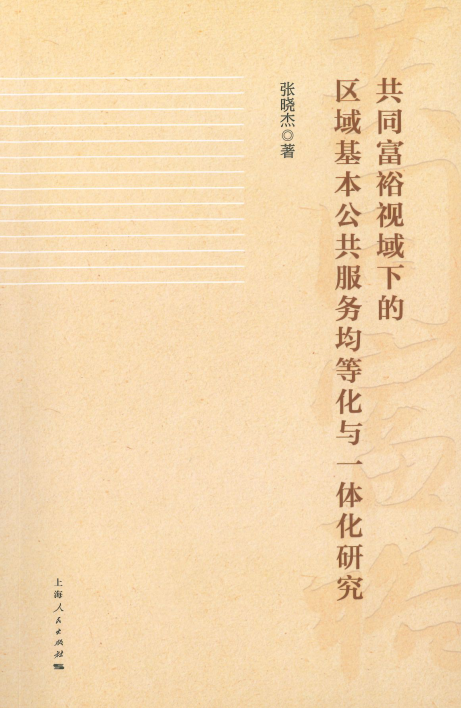 共同富裕视域下的
区域基本公共服务均等化与一体化研究
张晓杰◎著
上海人民出版社
共同富裕